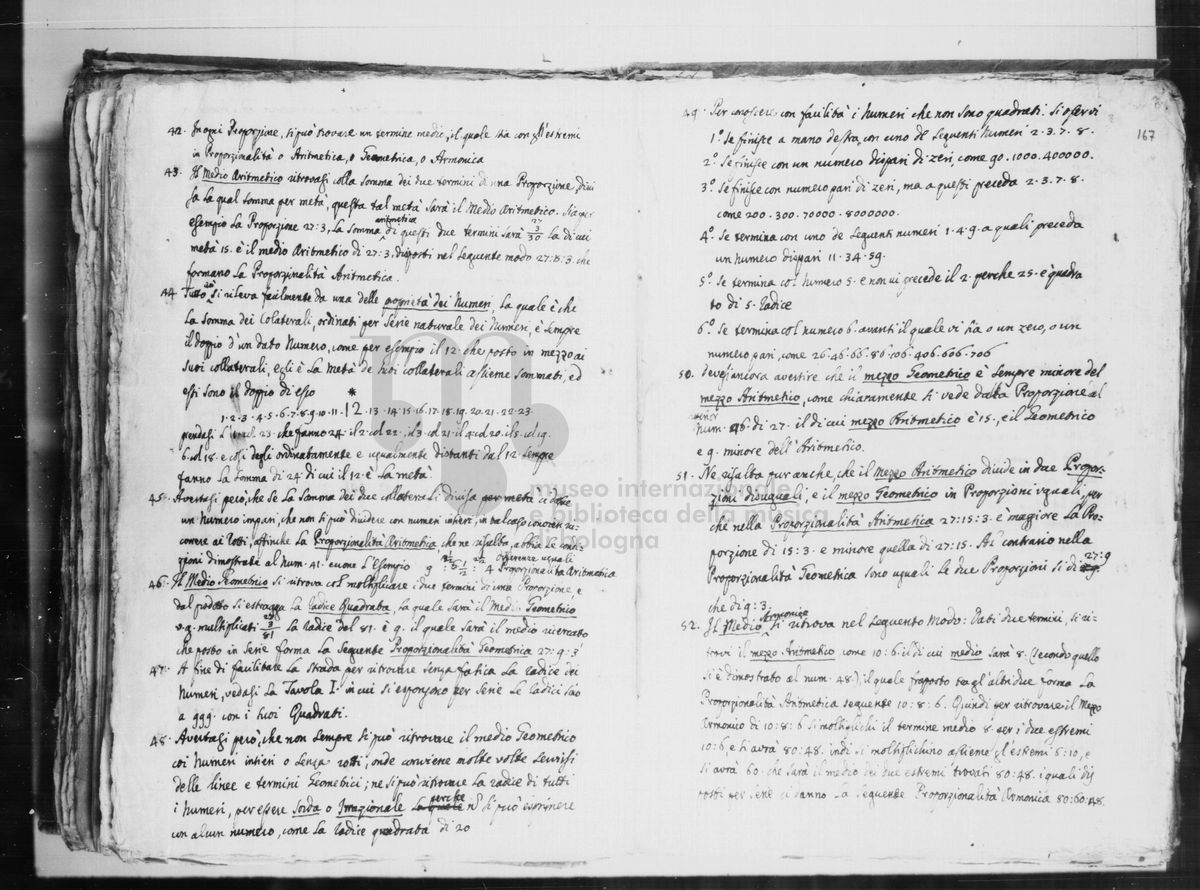 42. In ogni Proporzione, si può trovare un termine medio, il quale stia con gl'estremi
in Proporzionalità o Aritmetica, o Geometrica, o Armonica
43. Il Medio Aritmetico ritrovasi colla somma dei due termini di una Proporzione, divi
sa la qual somma per metà, questa tal metà sarà il Medio Aritmetico. Sia per
esempio la Proporzione 27:3, la somma aritmetica di questi due termini sarà 27 3 30 la di cui
metà 15. è il medio Aritmetico di 27:3, disposti nel seguente modo 27:15:3. che
formano la Proporzionalità Aritmetica.
44 Tutto si rileva facilmente da una delle proprietà dei Numeri. La quale è che
la somma dei Colaterali, ordinati per serie naturale dei Numeri, è sempre
il doppio d'un dato Numero, come per esempio il 12. che posto in mezzo ai
suoi collaterali, egli è la metà de suoi collaterali assieme sommati, ed
essi sono il doppio di esso *
1. 2. 3. 4. 5. 6. 7. 8. 9. 10. 11. 12. 13. 14. 15. 16. 17. 18. 19. 20. 21. 22. 23.
prendasi L' 23. che fanno 24. il 2. col 22. il 3. col 21. il 4. col 20. il 5. col 19.
6. col 18. e così degli ordinatamente e ugualmente distanti dal 12 sempre
fanno la somma di 24 di cui il 12 è la metà.
45. Avertasi però, che se la somma dei due collaterali divisa per metà
un Numero impari, che non si può dividere con numeri intieri, in tal caso converrà ri-
correre ai rotti, affinche la Proporzionalità Aritmetica che ne risulta, abbia le condi-
zioni dimostrate al num. 41. eccone l'esempio 9 : 4 differenze uguali Proporzionalità Aritmetica
46. Il Medio Geometrico si ritrova col moltiplicare i due termini di una Proporzione, e
dal prodotto si estragga la radice Quadrata, la quale sarà il Medio Geometrico
v.g. multeplicati 27 3 81 La radice del 81. è 9. il quale sarà il medio ricercato
che posto in serie forma la seguente Proporzionalità Geometrica 27:9:3
47. A fine di facilitare la strada per ritrovare senza fatica la radice dei
Numeri, vedasi la Tavola I. in cui si espongono per serie le radici sino
a 999. con i suoi Quadrati.
48. Avertasi però, che non sempre si può ritrovare il medio Geometrico
coi Numeri intieri o senza rotti, onde conviene molte volte servirsi
delle linee e termini Geometrici; ne si può ritrovare la radice di tutti
i Numeri, per essere Sorda o Irrazionale la quale perche no si può esprimere
con alcun numero, come la radice quadrata di 20
167
49. Per conoscere con facilità i Numeri che non sono quadrati. Si osservi
1.° Se finisce a mano destra con uno de seguenti Numeri 2. 3. 7. 8.
2.° Se finisce con un numero dispari di zeri, come 90. 1000. 400000.
3.° Se finisce con numero pari di zeri, ma a questi preceda 2. 3. 7. 8.
come 200. 300. 70000. 8000000.
4.° Se termina con uno de seguenti numeri 1. 4. 9. a quali preceda
un numero dispari 11. 34. 59.
5.° Se termina col Numero 5. e non vi precede il 2. perche 25. è quadra
to di 5. radice
6.° Se termina col numero 6. avanti il quale vi sia o un zero, o un
numero pari, come 26. 46. 66. 86. 106. 406. 606. 706
50. Devesi ancora avertire che il mezzo Geometrico è sempre minore del
mezzo Aritmetico, come chiaramente si vede dalla Proporzione al
num. 46. di 27. il di cui mezzo Aritmetico è 15., e il Geometrico
e 9. minore dell'Aritmetico.
51. Ne risulta pur anche, che il mezzo Aritmetico divide in due Propor-
zioni disuguali, e il mezzo Geometrico in Proporzioni uguali, per
che nella Proporzionalità Aritmetica 27:15:3. è maggiore la Pro-
porzione di 15:3. e minore quella di 27:15. Al contrario nella
Proporzionalità Geometrica sono uguali le due Proporzioni si di 27:9
che di 9:3.
52. Il Medio Armonico si ritrova nel seguente modo: Dati due termini, si ri-
trovi il mezzo Aritmetico come 10:6. il di cui medio sarà 8. (secondo quello
si è dimostrato al num. 48.), il quale frapposto tra gl'altri due forma la
Proporzionalità Aritmetica seguente 10:8:6. Quindi per ritrovare il Mezzo
Armonico di 10:8:6 si moltiplichi il termine medio 8 per i due estremi
10:6, e si avrà 80:48. indi si moltiplichino assieme gl'estremi 6:10, e
si avrà 60. che sarà il medio dei due estremi trovati 80:48. i quali dis
posti per serie ci danno la seguente Proporzionalità Armonica 80:60:48.
museo internazionale
e biblioteca della musica
di bologna